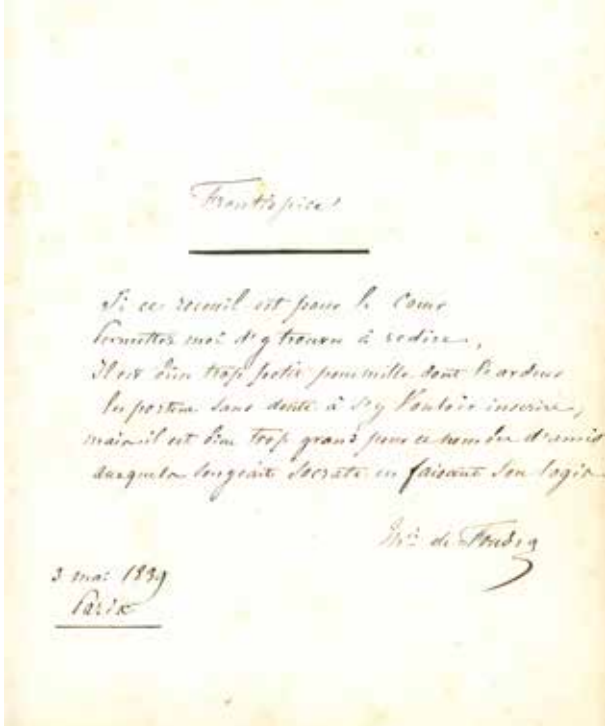 Frontispice!
Si ce recueil est pour le Cœur
Permettez moi d'y trouver à redire,
Il est bien trop petit pour mille dont l'ardeur
les portera sans doute à s'y Vouloir inscrire,
mais il est bien trop grand pour ce nombre d'amis
auxquels songeait Socrate en faisant son logis.
Mis de Foudras
3 mai 1839
Paris